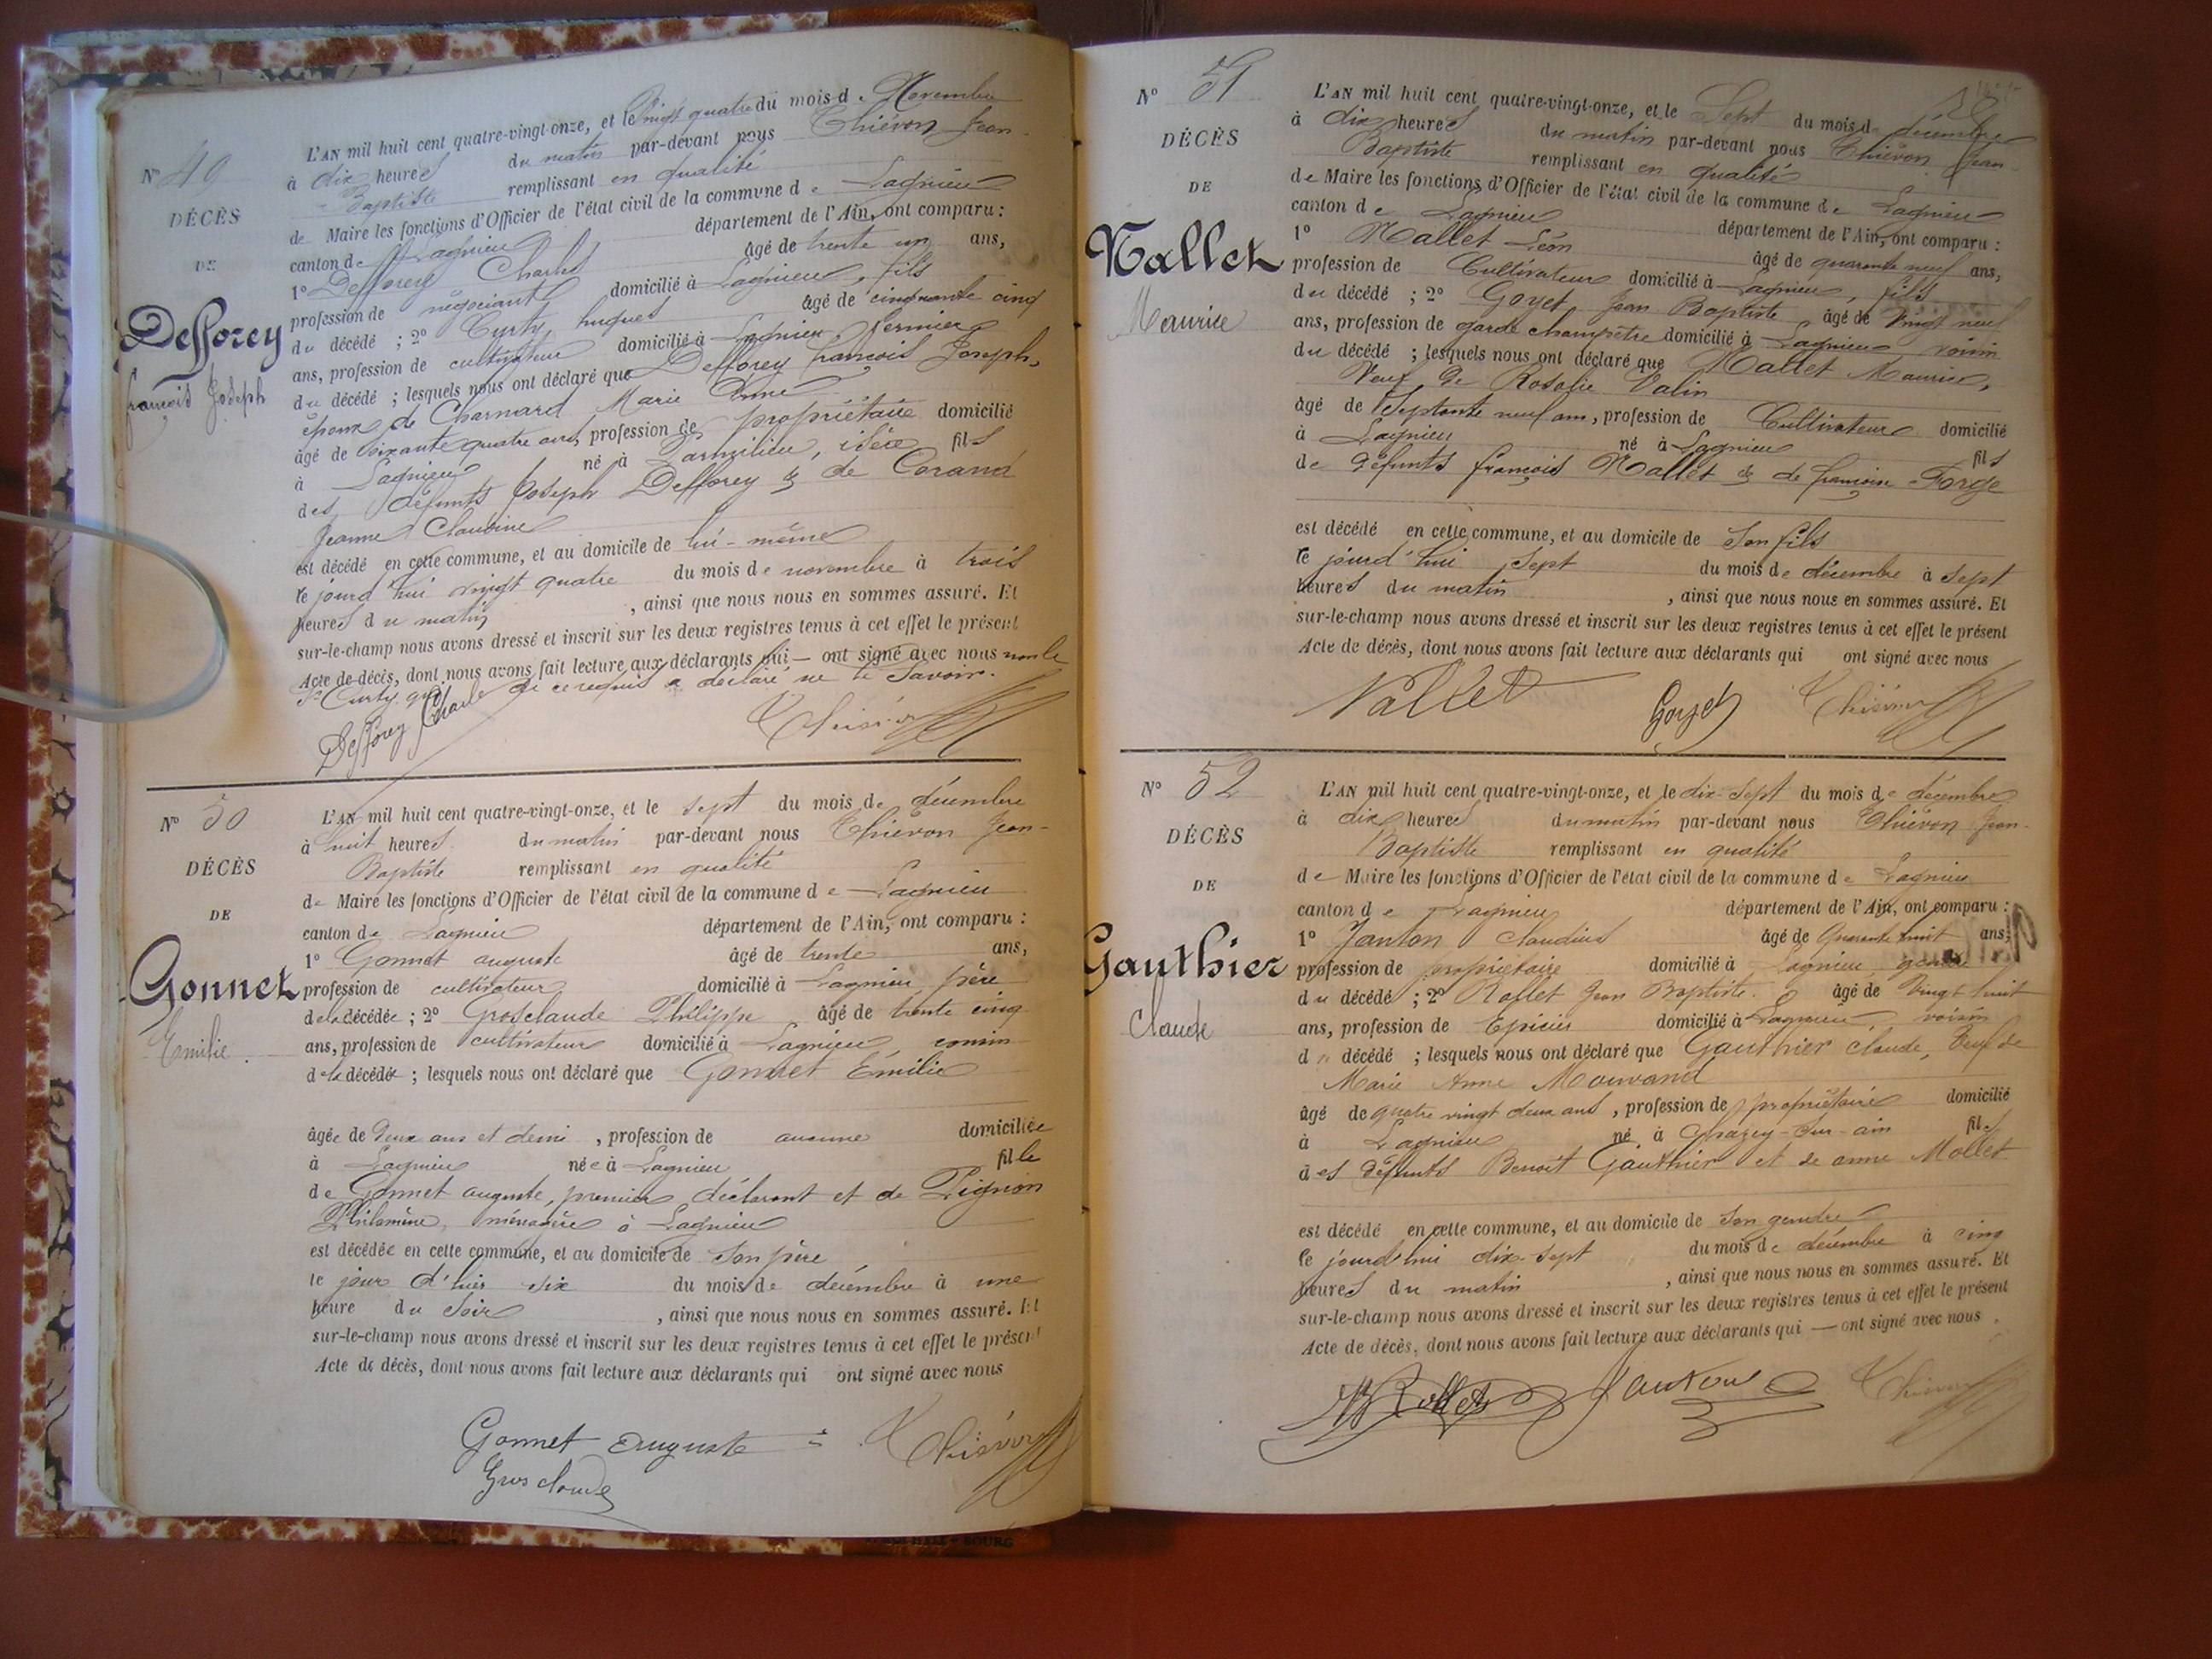 N° 49
DÉCÈS
DE
Defforey
françois Joseph
L'AN mil huit cent quatre-vingt-onze, et le vingt quatre du mois de Novembre
à dix heures du matin par-devant nous Thiévon Jean-
Baptiste remplissant en qualité
de Maire les fonctions d'Officier de l'état civil de la commune de Lagnieu
canton de Lagnieu département de l'Ain, ont comparu :
1° Defforey Charles âgé de trente un ans,
profession de négociant domicilié à Lagnieu, fils
du décédé ; 2° Curty hugues âgé de cinquante cinq
ans, profession de cultivateur domicilié à Lagnieu fermier
du décédé ; lesquels nous ont déclaré que Defforey françois Joseph,
époux de Charnard Marie Anne
âgé de soixante quatre ans, profession de propriétaire domicilié
à Lagnieu né à Parmilieu, isère fils
des défunts Joseph Defforey & de Corand
Jeanne Claudine
est décédé en cette commune, et au domicile de lui-même
le jourd'hui vingt quatre du mois de novembre à trois
heures du matin, ainsi que nous nous en sommes assuré. Et
sur-le-champ nous avons dressé et inscrit sur les deux registres tenus à cet effet le présent
Acte de décès, dont nous avons fait lecture aux déclarants qui — ont signé avec nous non le
Sr Curty qui de ce requis a déclaré ne le savoir.
Defforey Charles Thiévon
N° 50
DÉCÈS
DE
Gonnet
Emilie
L'AN mil huit cent quatre-vingt-onze, et le sept du mois de décembre
à huit heures du matin par-devant nous Thiévon Jean-
Baptiste remplissant en qualité
de Maire les fonctions d'Officier de l'état civil de la commune de Lagnieu
canton de Lagnieu département de l'Ain, ont comparu :
1° Gonnet auguste âgé de trente ans,
profession de cultivateur domicilié à Lagnieu, père
de la décédée ; 2° Grosclaude Philippe âgé de trente cinq
ans, profession de cultivateur domicilié à Lagnieu, cousin
de la décédée ; lesquels nous ont déclaré que Gonnet Emilie
âgée de deux ans et demi, profession de aucune domiciliée
à Lagnieu née à Lagnieu fille
de Gonnet auguste, premier déclarant et de Pignon
Philomène, ménagère à Lagnieu
est décédée en cette commune, et au domicile de son père
le jour d'hier six du mois de décembre à une
heure du soir, ainsi que nous nous en sommes assuré. Et
sur-le-champ nous avons dressé et inscrit sur les deux registres tenus à cet effet le présent
Acte de décès, dont nous avons fait lecture aux déclarants qui ont signé avec nous
Gonnet auguste Thiévon
Grosclaude
N° 51
DÉCÈS
DE
Nallet
Maurice
L'AN mil huit cent quatre-vingt-onze, et le Sept du mois de décembre
à dix heures du matin par-devant nous Thiévon Jean-
Baptiste remplissant en qualité
de Maire les fonctions d'Officier de l'état civil de la commune de Lagnieu
canton de Lagnieu département de l'Ain, ont comparu :
1° Nallet Léon âgé de quarante neuf ans,
profession de Cultivateur domicilié à Lagnieu, fils
du décédé ; 2° Goyet Jean Baptiste âgé de vingt neuf
ans, profession de garde champêtre domicilié à Lagnieu voisin
du décédé ; lesquels nous ont déclaré que Nallet Maurice,
Veuf de Rosalie Valin
âgé de Septante neuf ans, profession de Cultivateur domicilié
à Lagnieu né à Lagnieu fils
de défunts françois Nallet & de françoise Forge
est décédé en cette commune, et au domicile de son fils
le jourd'hui sept du mois de décembre à sept
heures du matin, ainsi que nous nous en sommes assuré. Et
sur-le-champ nous avons dressé et inscrit sur les deux registres tenus à cet effet le présent
Acte de décès, dont nous avons fait lecture aux déclarants qui ont signé avec nous
Nallet Goyet Thiévon
N° 52
DÉCÈS
DE
Gauthier
Claude
L'AN mil huit cent quatre-vingt-onze, et le dix-sept du mois de décembre
à dix heures du matin par-devant nous Thiévon Jean-
Baptiste remplissant en qualité
de Maire les fonctions d'Officier de l'état civil de la commune de Lagnieu
canton de Lagnieu département de l'Ain, ont comparu :
1° Janton Claudius âgé de quarante huit ans,
profession de propriétaire domicilié à Lagnieu, gendre
du décédé ; 2° Rollet Jean Baptiste âgé de vingt huit
ans, profession de Epicier domicilié à Lagnieu, voisin
du décédé ; lesquels nous ont déclaré que Gauthier claude, veuf de
Marie Anne Mouvand
âgé de quatre vingt deux ans, profession de propriétaire domicilié
à Lagnieu né à Chazey-sur-ain fils
des défunts Benoit Gauthier et de anne Mollet
est décédé en cette commune, et au domicile de son gendre
le jourd'hui dix-sept du mois de décembre à cinq
heures du matin, ainsi que nous nous en sommes assuré. Et
sur-le-champ nous avons dressé et inscrit sur les deux registres tenus à cet effet le présent
Acte de décès, dont nous avons fait lecture aux déclarants qui — ont signé avec nous.
JB Rollet Janton Thiévon